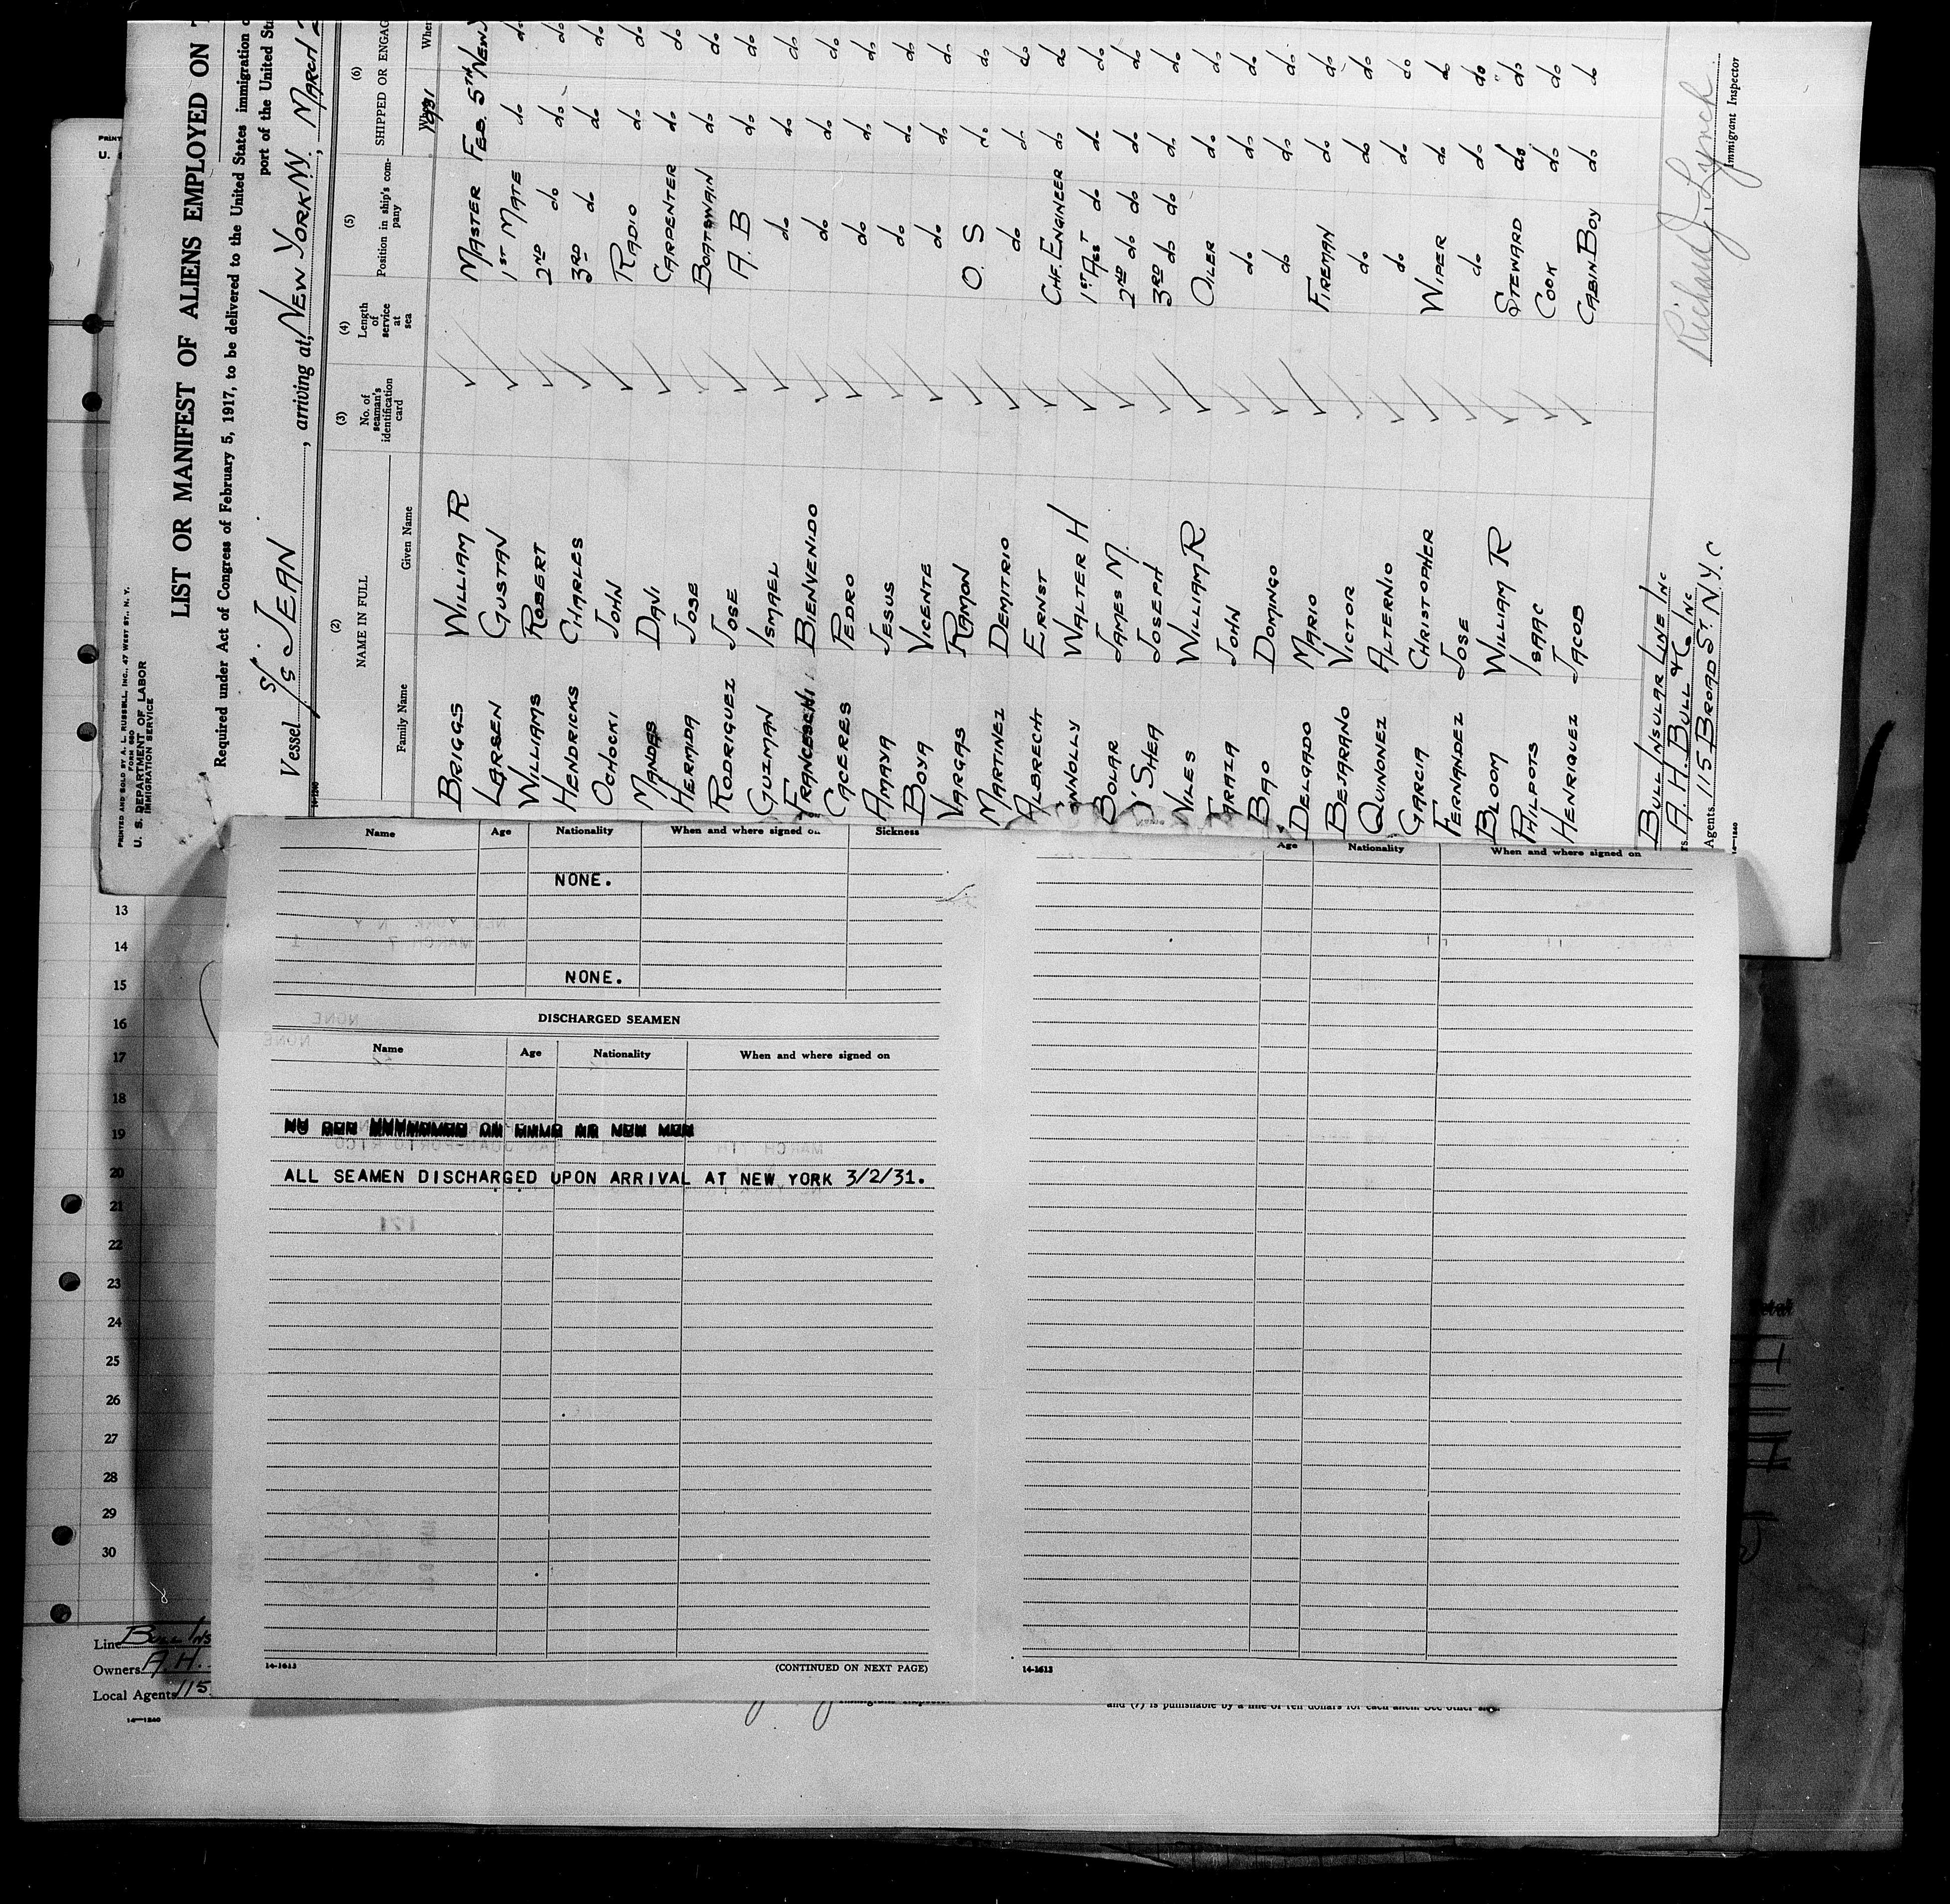 PRINTED AND SOLD BY A. L. RUSSELL, INC., 47 WEST ST., N. Y.
FORM 680
U. S. DEPARTMENT OF LABOR
IMMIGRATION SERVICE
LIST OR MANIFEST OF ALIENS EMPLOYED ON
Required under Act of Congress of February 5, 1917, to be delivered to the United States immigration
port of the United
Vessel S/S JEAN, arriving at NEW YORK N.Y., MARCH 2
(2) (3) (4) (5) (6)
NAME IN FULL No. of seaman's identification card Length of service at sea Position in ship's company SHIPPED OR ENGAG
Family Name Given Name When
1931
BRIGGS WILLIAM R MASTER FEB. 5TH NEW
LARSEN GUSTAN 1ST MATE do do
WILLIAMS ROBERT 2ND do do do
HENDRICKS CHARLES 3RD do do do
OCHOCKI JOHN RADIO do do
MANDES DAVI CARPENTER do do
HERMIDA JOSE BOATSWAIN do do
RODRIGUEZ JOSE A. B do do
GUZMAN ISMAEL do do do
FRANCESCHI BIENVENIDO do do do
CACERES PEDRO do do do
AMAYA JESUS do do do
BOYA VICENTE do do do
VARGAS RAMON O. S do do
MARTINEZ DEMITRIO do do do
ALBRECHT ERNST CHF. ENGINEER do do
ONNOLLY WALTER H 1ST ASST do do do
BOLAR JAMES M. 2ND do do do do
O'SHEA JOSEPH 3RD do do do do
NILES WILLIAM R OILER do do
JOHN do do do
BAO DOMINGO do do do
DELGADO MARIO FIREMAN do do
BEJARANO VICTOR do do do
QUINONEZ ALTERNIO do do do
GARCIA CHRISTOPHER WIPER do do
FERNANDEZ JOSE do do do
BLOOM WILLIAM R STEWARD do do
PHILPOTS ISAAC COOK do do
HENRIQUEZ JACOB CABIN BOY do do
BULL INSULAR LINE INC
A. H. BULL & Co INC
Agents 115 BROAD ST. N.Y.C
Richard J. Lynch
Immigrant Inspector
14-1240
Name Age Nationality When and where signed on Sickness
NONE.
NONE.
DISCHARGED SEAMEN
Name Age Nationality When and where signed on
ALL SEAMEN DISCHARGED UPON ARRIVAL AT NEW YORK 3/2/31.
14-1613
(CONTINUED ON NEXT PAGE)
Age Nationality When and where signed on
14-1613
13
14
15
16
17
18
19
20
21
22
23
24
25
26
27
28
29
30
Line BULL INS
Owners A. H.
Local Agents 115
14-1240
and (7) is punishable by a fine of ten dollars for each alien. See other